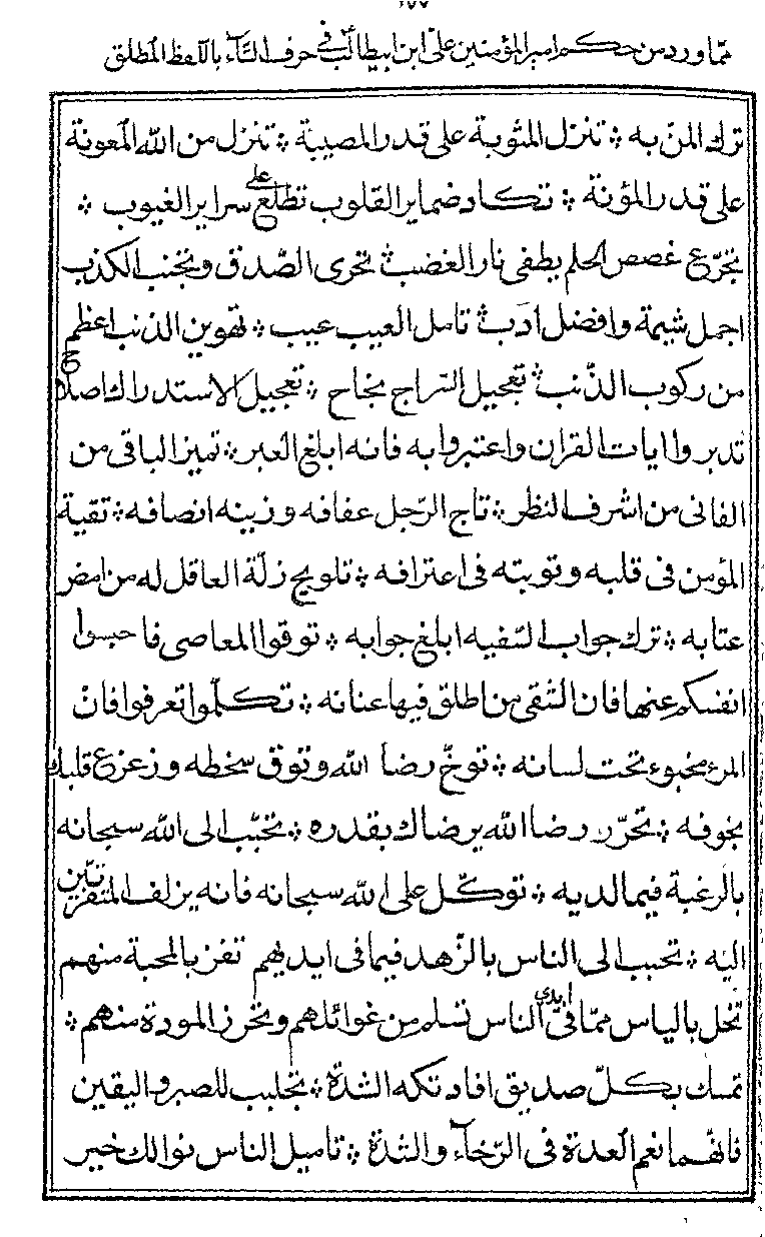 ١٧٧
ممّا ورد من حكم امير المؤمنين على ابن ابيطالب فى حرف التآء بالّلفظ المطلق
ترك المنّ به ؞ تنزل المثوبة على قدر المصيبة ؞ تنزل من اللّه المعونة
على قدر المؤنة ؞ تكاد ضماير القلوب تطلع على سراير الغيوب ؞
تجرّع غصص الحلم يطفى نار الغضب ؞ تحرى الصّدق وتجنب الكذب
اجمل شيمة وافضل ادب ؞ تامل العيب عيب ؞ تهوين الذنب اعظم
من ركوب الذّنب ؞ تعجيل السّراح نجاح ؞ تعجيل الاستدراك اصلاح
تدبروا ايات القران واعتبروا به فانه ابلغ العبر ؞ تميز الباقى من
الفانى من اشرف النظر ؞ تاج الرّجل عفافه وزينه انصافه ؞ تقية
المؤمن فى قلبه وتوبته فى اعترافه ؞ تلويح زلّة العاقل له من امض
عتابه ؞ ترك جواب السّفيه ابلغ جوابه ؞ توقوا المعاصى فاحبسوا
انفسكم عنها فان الشقى من اطلق فيها عنانه ؞ تكلّموا تعرفوا فانّ
المرء مخبوء تحت لسانه ؞ توخّ رضا اللّه وتوق سخطه وزعزع قلبك
بخوفه ؞ تحرّ رضا اللّه برضاك بقدره ؞ تحبّب الى اللّه سبحانه
بالرغبة فيما لديه ؞ توكّل على اللّه سبحانه فانه يزلف المتقربين
اليه ؞ تحبب الى الناس بالزّهد فيما فى ايديهم تفز بالمحبة منهم
تحل بالياس ممّا فى ايدى الناس تسلم من غوائلهم وتحرز المودة منهم ؞
تمسك بكلّ صديق افادتكه الشدّة ؞ تجلبب للصبر واليقين
فانهّما نعم العدة فى الرّخآء والشدّة ؞ تاميل الناس نوالك خير